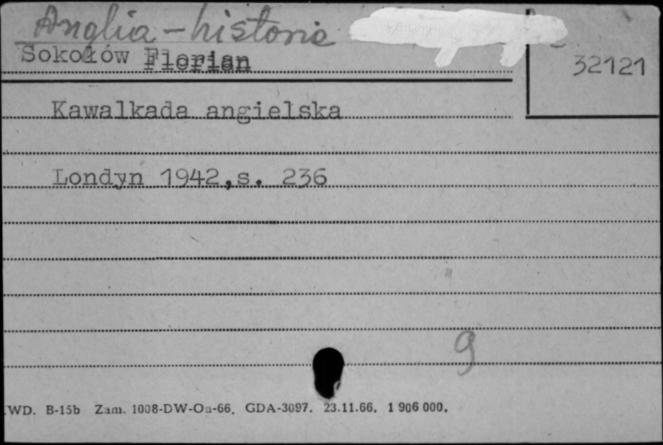 Anglia - historia
Sokołów Florian
32121
Kawalkada angielska
Londyn 1942,s. 236
9
WD. B-15b Zam. 1008-DW-Oa-66. GDA-3097. 23.11.66. 1 906 000.